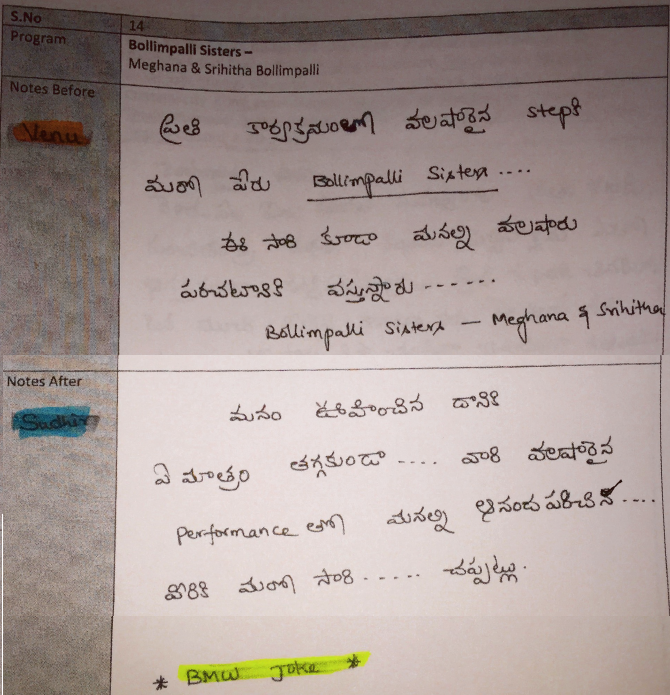 S.No
14
Program
Bollimpalli Sisters –
Meghana & Srihitha Bollimpalli
Notes Before
Venu
ప్రతి కార్యక్రమంలో వలషారైన stepకి
మరో పేరు Bollimpalli Sisters ....
ఈ సారి కూడా మనల్ని వలషారు
పరచటానికి వస్తున్నారు ------
Bollimpalli Sisters — Meghana & Srihitha
Notes After
Sudhir
మనం ఊహించిన దానికి
ఏ మాత్రం తగ్గకుండా .... వారి వలషారైన
Performance తో మనల్ని ఆనంద పరిచిన ....
వీరికి మరో సారి ...... చప్పట్లు.
* BMW Joke *